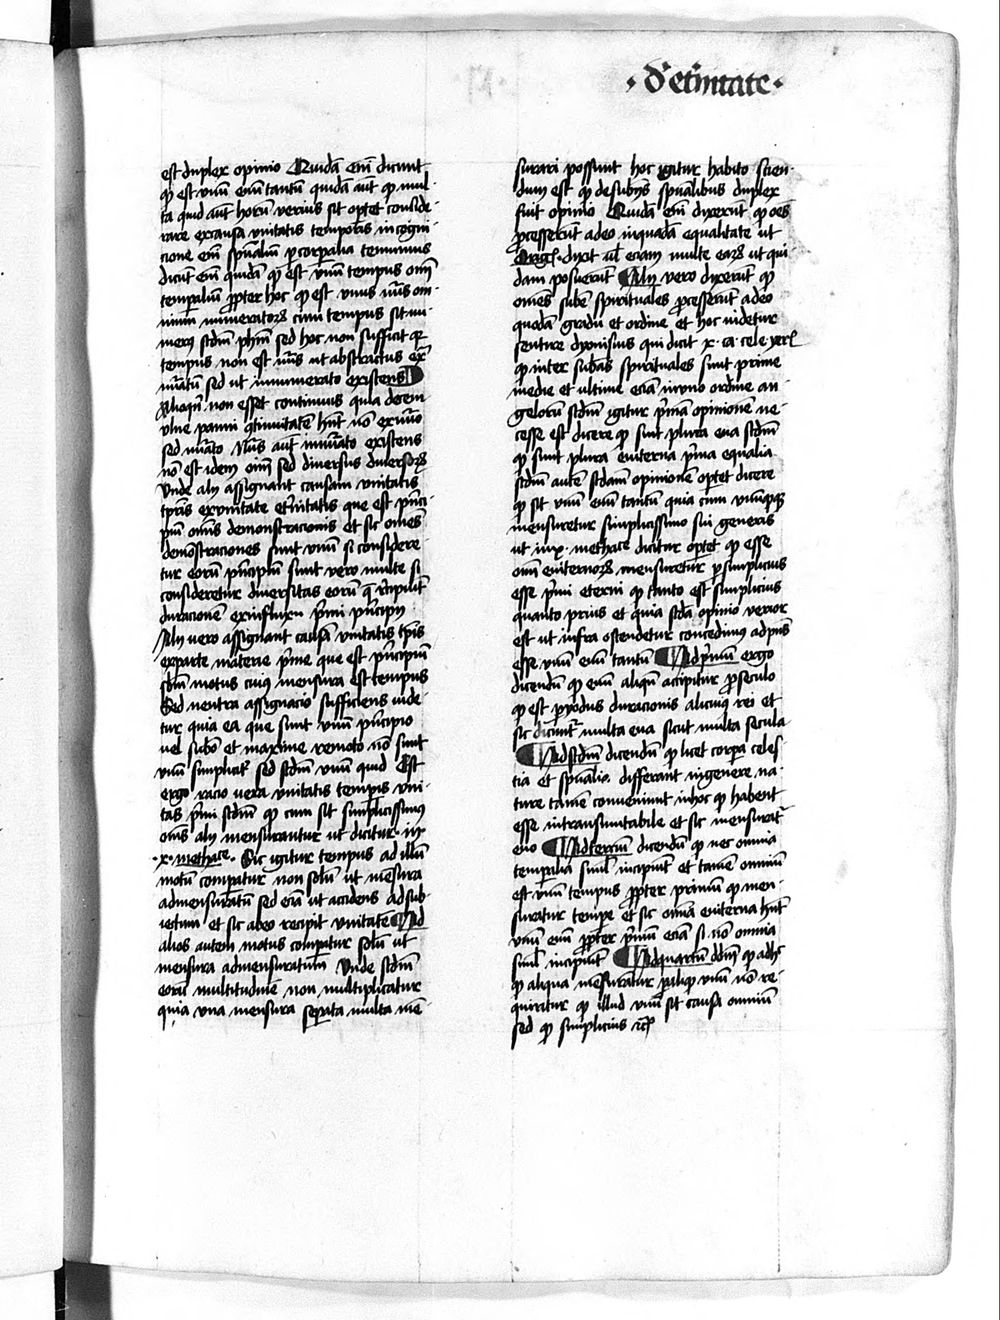 · d' et'nitate ·
est duplex opinio Quidā eīm dicunt
qꝫ est vnū euū tantū quidā aut qꝫ mul-
ta quid aut̄ horū verius sit optet conside-
rare ex causa vnitatis temporis in cogni-
cione eīm spūaliū ꝑ corporalia venimus
dicūt eīm quidā qꝫ est vnū tempus om̄
temporaliū ꝓpter hoc qꝫ est vnus nūs om-
nium numeratorꝝ cum tempus sit nu-
merus scdm̄ phm̄ sed hoc non sufficit qꝛ
tempus non est nūs ut abstractus ex
nūato sed ut in numerato existens
Alioqn̄ non esset continuus quia decem
vlne panni ꝯtinuitatē hn̄t nō ex nūo
sed nūato Nūs aut in nūato existens
nō est idem oīm sed diuersus diuersorꝝ
Vnde alij assignant causam vnitatis
tꝑis ex vnitate et'nitatis que est pnci-
piū oīnis duracionis et sic omēs
duraciones sunt vnū si considere-
tur eorū pncipiū sunt vero multe si
consideretur diuersitas eorū q̄ recipiūt
duracionē ex influxu primi pncipij
Alij vero assignant causā vnitatis tꝑis
ex parte materie prime que est pncipiū
sbm̄ motus cuius mensura est tempus
Sed neutra assignacio sufficiens vide-
tur quia ea que sunt vnū pncipio
vel subō et maxime remoto nō sunt
vnū simplicit' sed scdm̄ quid Est
ergo racio vera vnitatis tempis vni-
tas pmi scdm̄ qꝫ cum sit simplicissimus
oms alij mensurantur ut dicitur in
·x· methace. Sic igitur tempus ad illū
motū compatur non solū ut mēsura
ad mensuratū sed eciā ut accidens ad sub-
iectum et sic ab eo recipit vnitatē Ad
alios autem motus compatur solū ut
mensura ad mensuratum Vnde scdm̄
eorū multitudinē non multiplicatur
quia vna mensura sepata multa mē-
surari possunt hoc igitur habito scien-
dum est qꝫ de subijs spūalibus duplex
fuit opinio Quidā eīm dixerūt qꝫ oēs
ꝓcesserūt a deo in quadā equalitate ut
Origē. dixit ul' eciam multe earꝝ ut qui-
dam posuerūt Alij vero dixerūt qꝫ
omēs subē spirituales ꝓcesserūt a deo
quodā gradu et ordine et hoc videtur
sentire dyonisius qui dicit x· ca· cele yerl'
qꝫ inter subās spirituales sunt prime
medie et vltime eciā in vno ordine an-
gelorū scdm̄ igitur primā opinionē ne-
cesse est dicere qꝫ sint plura eua scdm̄
qꝫ sunt plura euiterna prima equalia
scdm̄ autē scdam opinionē optet dicere
qꝫ sit vnū euū tantū quia cum vnūqꝫqꝫ
mensuretur simplicissimo sui generis
ut in x· methace dicitur optet qꝫ esse
oīm euiternorꝝ mensuretur ꝑ simplicius
esse primi eterni qꝫ tanto est simplicius
quanto prius et quia scda opinio verior
est ut infra ostendetur concedimꝰ ad pn̄s
esse vnū euū tantū Ad primū ergo
dicendū qꝫ euū aliqn̄ accipitur pro seculo
qꝫ est pyodus duracionis alicuius rei et
sic dicunt' multa eua sicut multa secula
Ad scdm̄ dicendū qꝫ licet corpora celes-
tia et spūalia differant in genere na-
ture tamē conueniunt in hoc qꝫ habent
esse intransmutabile et sic mensurat'
euo Ad tercium dicendū qꝫ nec omnia
temporalia simul incipiūt et tamē omniū
est vnū tempus ꝓpter primū qꝫ men-
suratur tempe et sic omīa euiterna hn̄t
vnū euū ꝓpter primū eciā si nō omnia
simul incipiunt Ad quartū ddm̄ qꝫ ad hͦ
qꝫ aliqua mēsurātur ꝑ aliqꝫ vnū nō re-
quiratur qꝫ illud vnū sit causa omniū
sed qꝫ simplicius rc̄